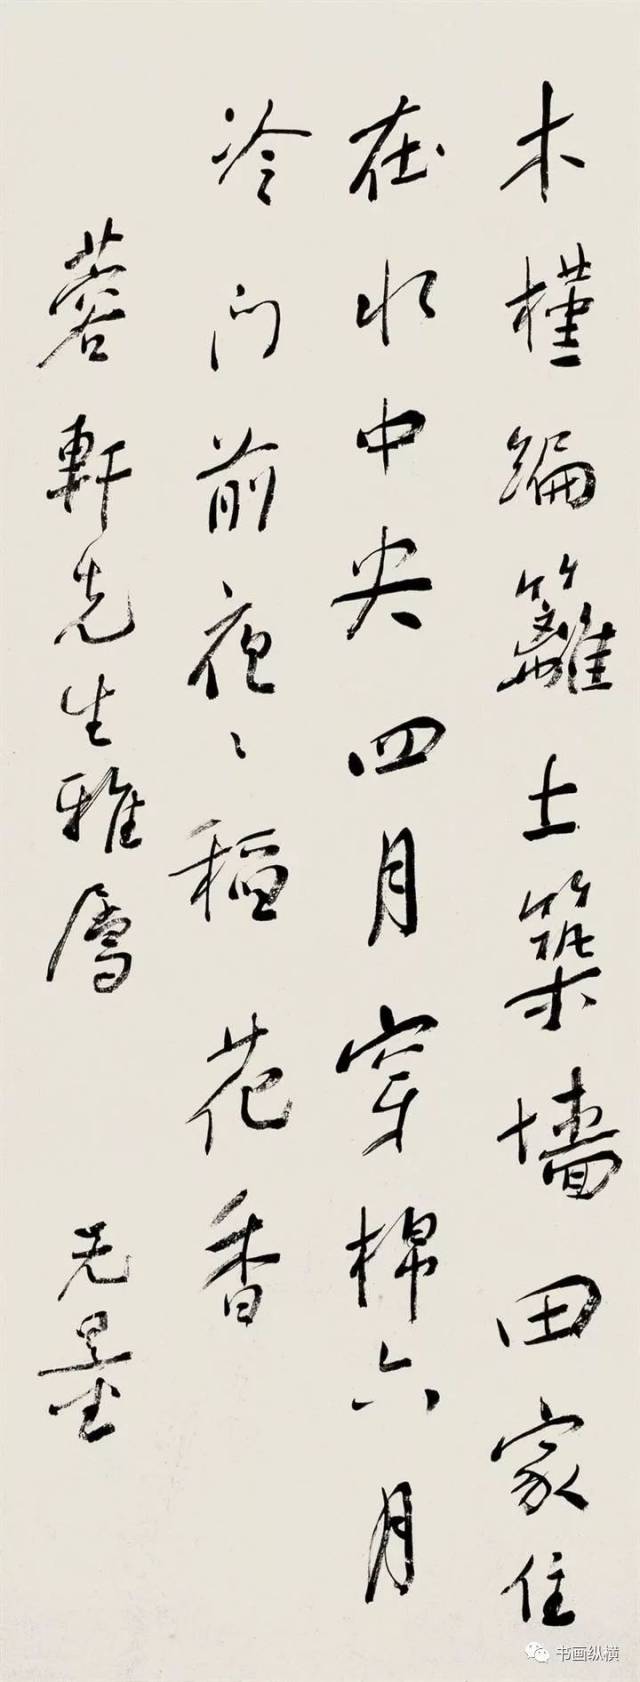 木槿編籬土築墻田家住
在水中央四月穿棉六月
冷门前夜〻稻花香
蓉軒先生雅屬 无量
书画纵横